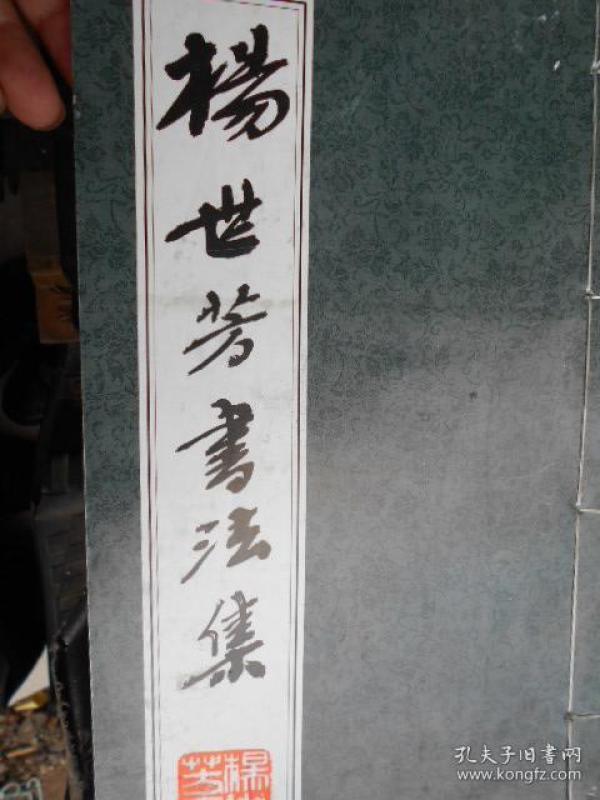 楊世芳書法集
楊
芳
孔夫子旧書网
www.kongfz.com